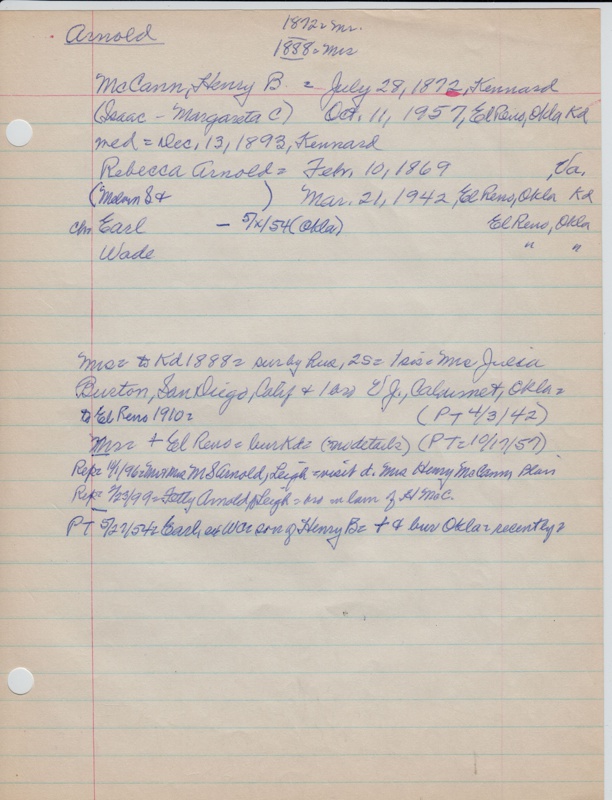 Arnold
1872 = Mr.
1888 = Mrs
McCann, Henry B. = July 28, 1872, Kennard
(Isaac - Margareta C) Oct. 11, 1957, El Reno, Okla Kd
med = Dec, 13, 1893, Kennard
Rebecca Arnold = Febr. 10, 1869 , Va.
( S + ) Mar. 21, 1942, El Reno, Okla Kd
chn Earl - 5/x/54 (Okla) El Reno, Okla
Wade " "
Mrs = to Kd 1888 = sur by Hus, 2S = 1 sis = Mrs Julia
Burton, San Diego, Calif + 1 bro E J., Calumet, Okla =
to El Reno 1910 = (PT 4/3/42)
Mr = + El Reno = bur Kd = (no details) (PT = 10/17/57)
Rep = /96 = Mr + Mrs M S Arnold, Leigh = visit d. Mrs Henry McCann,
Rep = /99 = Arnold, Leigh = bro in law of H McC.
PT 5/27/54 = Earl, ex WCr son of Henry B = + & bur Okla = recently =